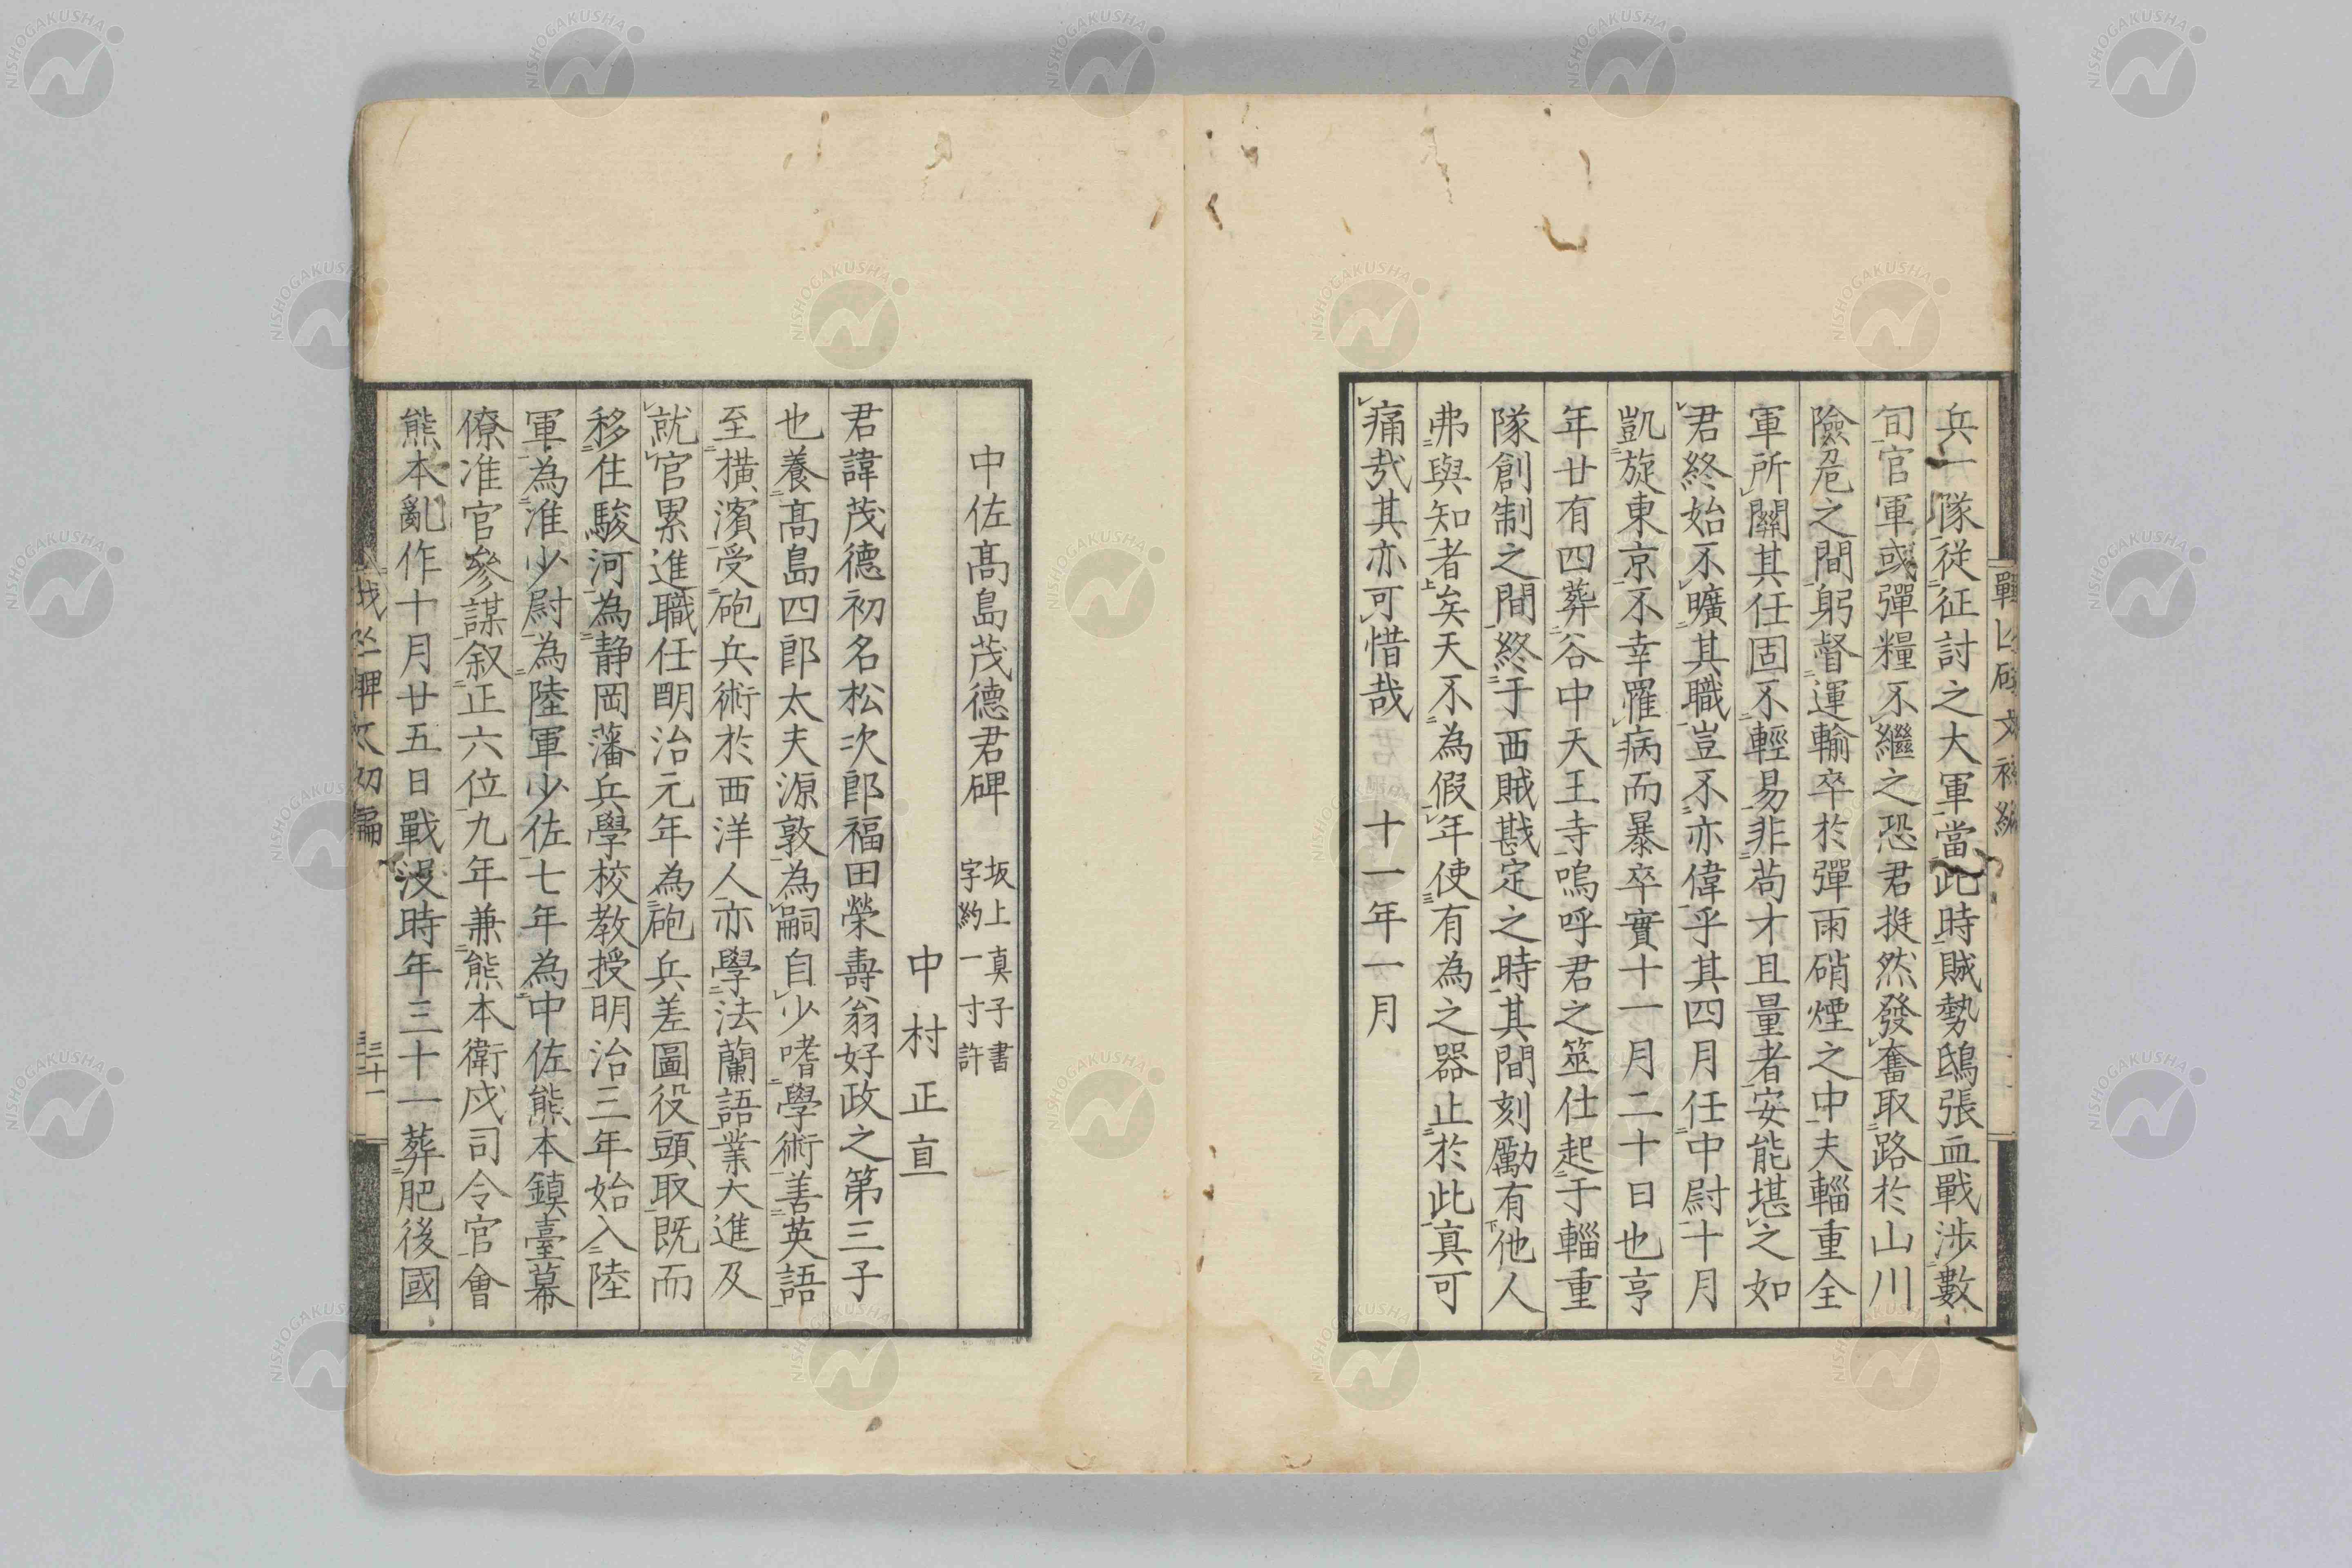 兵一隊從征討之大軍當此時賊勢鴟張血戰涉數
旬官軍或彈糧不繼之恐君挺然發奮取路於山川
險危之間躬督運輸卒於彈雨硝煙之中夫輜重全
軍所關其任固不輕易非苟才且量者安能堪之如
君終始不曠其職豈不亦偉乎其四月任中尉十月
凱旋東京不幸罹病而暴卒實十一月二十日也亨
年廿有四葬谷中天王寺嗚呼君之筮仕起于輜重
隊創制之間終于西賊戡定之時其間刻勵有他人
弗與知者矣天不為假年使有為之器止於此真可
痛哉其亦可惜哉　　十一年一月
中佐髙島茂德君碑　坂上真子書字約一寸許
中村正直
君諱茂德初名松次郎福田榮壽翁好政之第三子
也養髙島四郎太夫源敦為嗣自少嗜學術善英語
至橫濱受砲兵術於西洋人亦學法蘭語業大進及
就官累進職任明治元年為砲兵差圖役頭取既而
移住駿河為静岡藩兵學校教授明治三年始入陸
軍為准少尉為陸軍少佐七年為中佐熊本鎮臺幕
僚准官參謀叙正六位九年兼熊本衛戍司令官會
熊本亂作十月廿五日戰没時年三十一葬肥後國
三十一
NISHOGAKUSHA